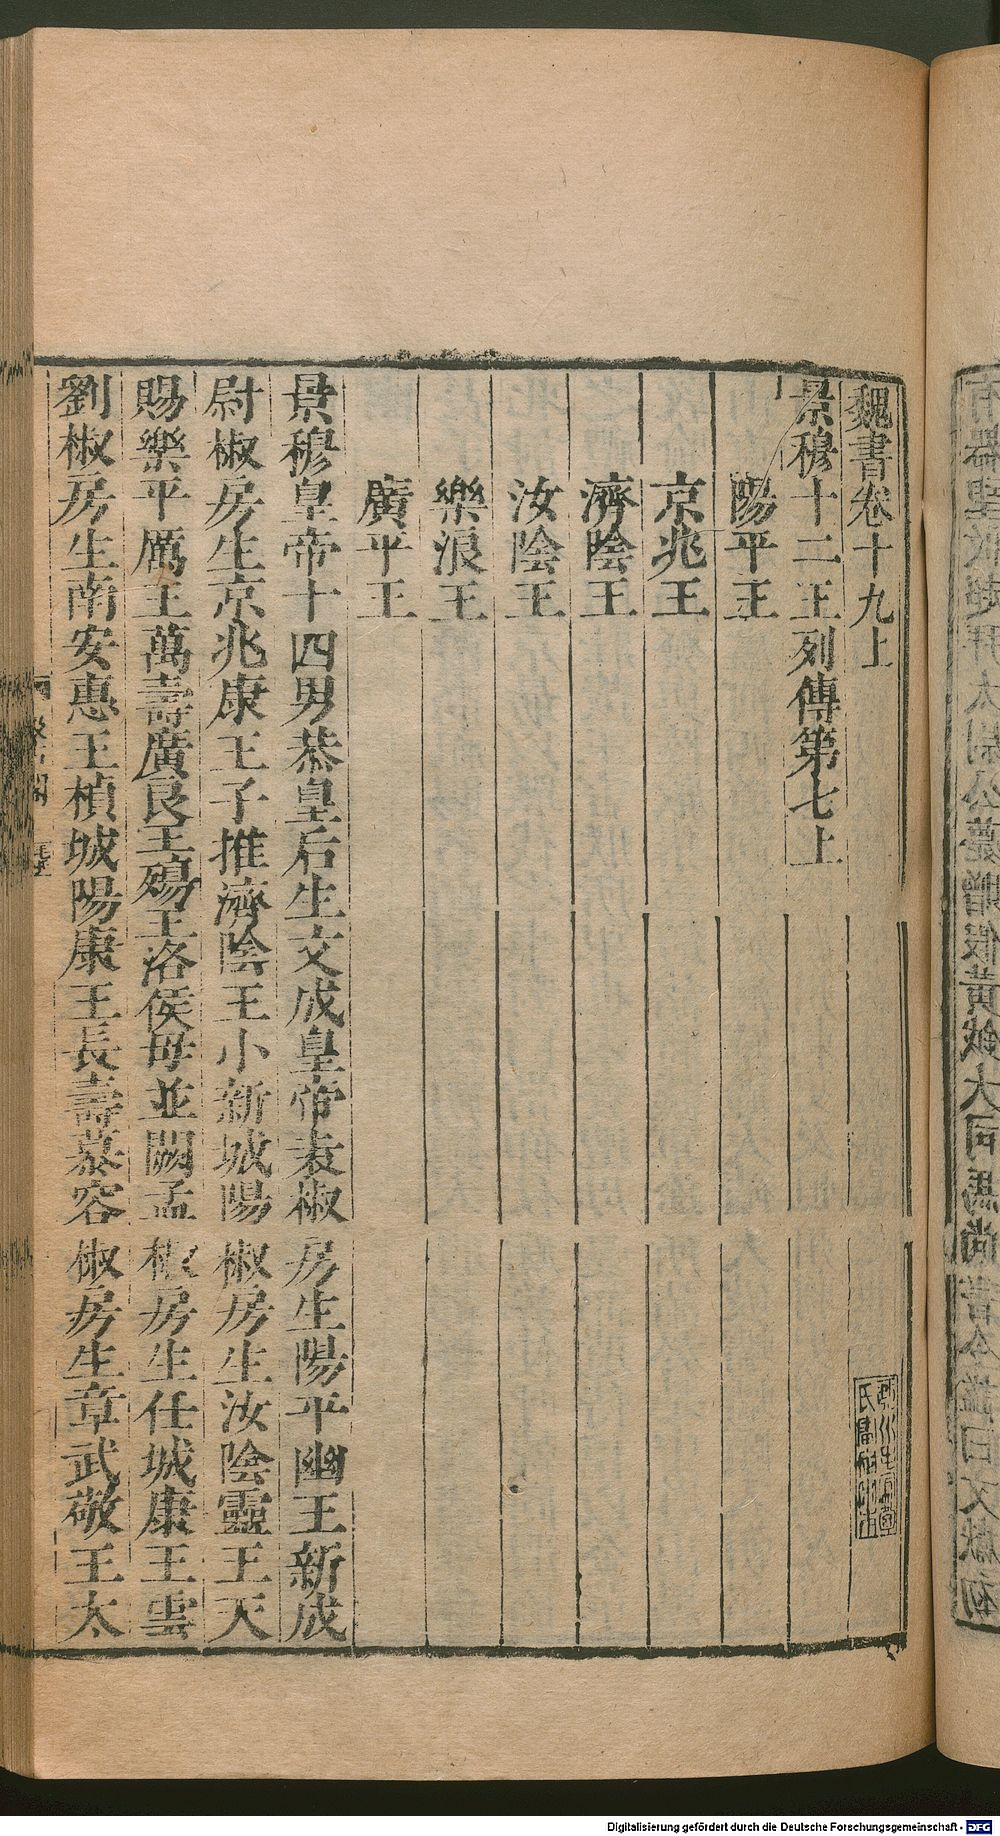 魏書卷十九上
景穆十二王列傳第七上
陽平王
京兆王
濟陰王
汝陰王
樂浪王
廣平王
景穆皇帝十四男恭皇后生文成皇帝袁椒房生陽平幽王新成
尉椒房生京兆康王子推濟陰王小新城陽椒房生汝陰靈王天
賜樂平厲王萬壽廣良王殤王洛侯母並闕孟椒房生任城康王雲
劉椒房生南安惠王楨城陽康王長壽慕容椒房生章武敬王太
Digitalisierung gefördert durch die Deutsche Forschungsgemeinschaft - DFG